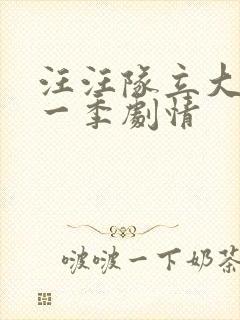 汪汪隊立大
一季劇情
啵啵一下奶茶